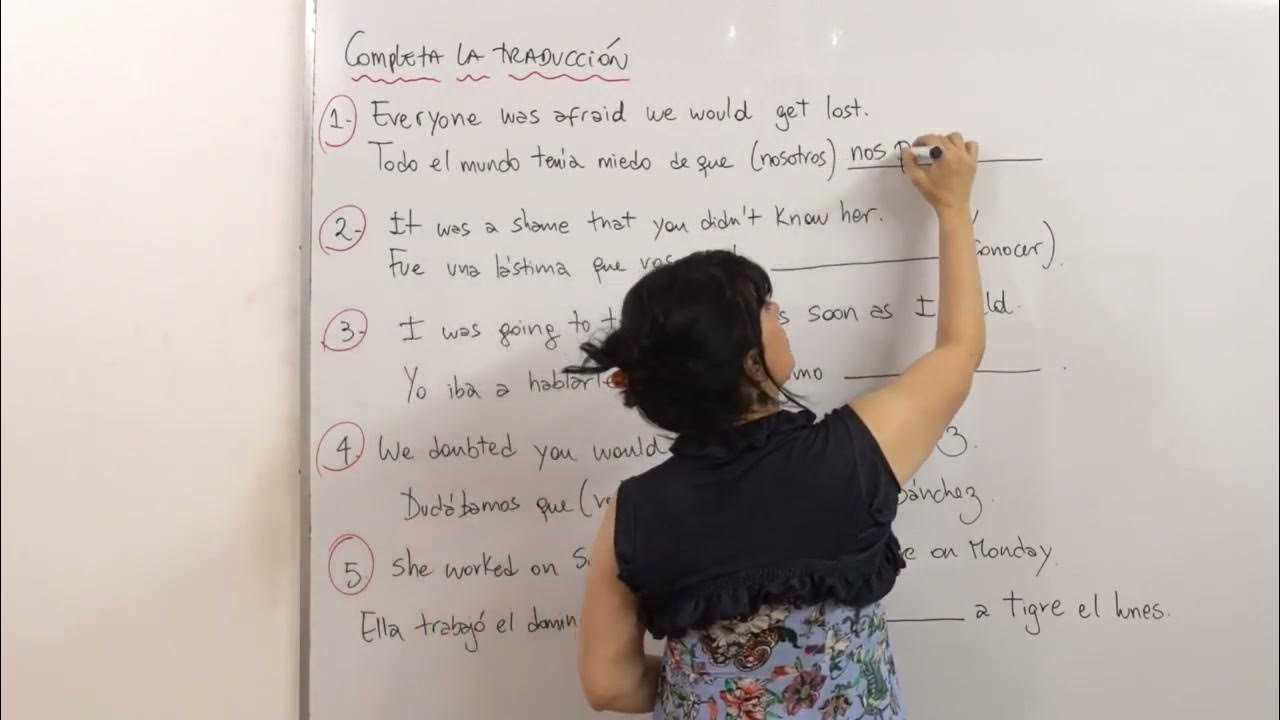 COMPLETA LA TRADUCCIÓN
1- Everyone was afraid we would get lost.
Todo el mundo tenía miedo de que (nosotros) nos p
2- It was a shame that you didn't know her.
Fue una lástima que vos conocer).
3- I was going to soon as I
Yo iba a
4. We doubted you would
Dudábamos que Sánchez.
5. She worked on on Monday.
Ella trabajó el a Tigre el lunes.